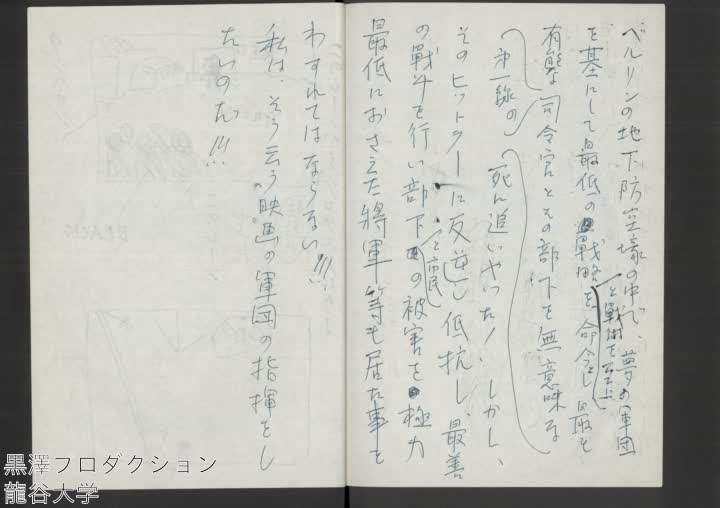 ベルリンの地下防空壕の中で、夢の軍団
を基にして最低の戦略を命令し最も
と戦術を
有能な司令官とその部下を無意味な
第一線の
死に追いやった！しかし、
そのヒットラーに反逆し低抗し、最善
の戦斗を行い部下の被害を極力
と市民
最低におさえた将軍等も居た事を
わすれてはならない!!!
私は、そう云う映画の軍団の指揮をし
たいのだ!!!
黒澤プロダクション
龍谷大学